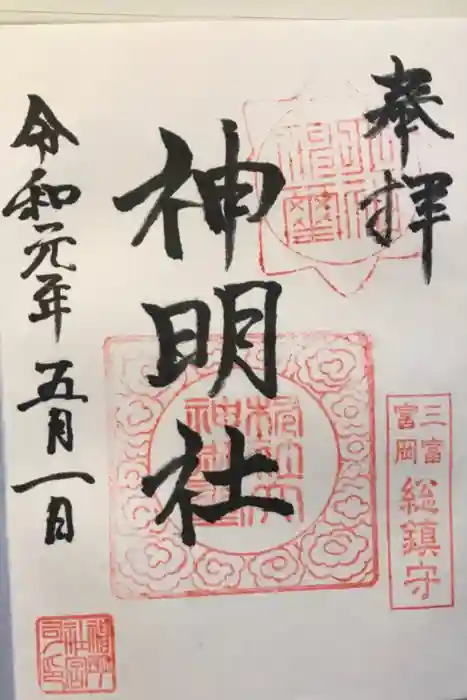 奉拝
三富
富岡
総鎮守
神明社
令和元年五月一日